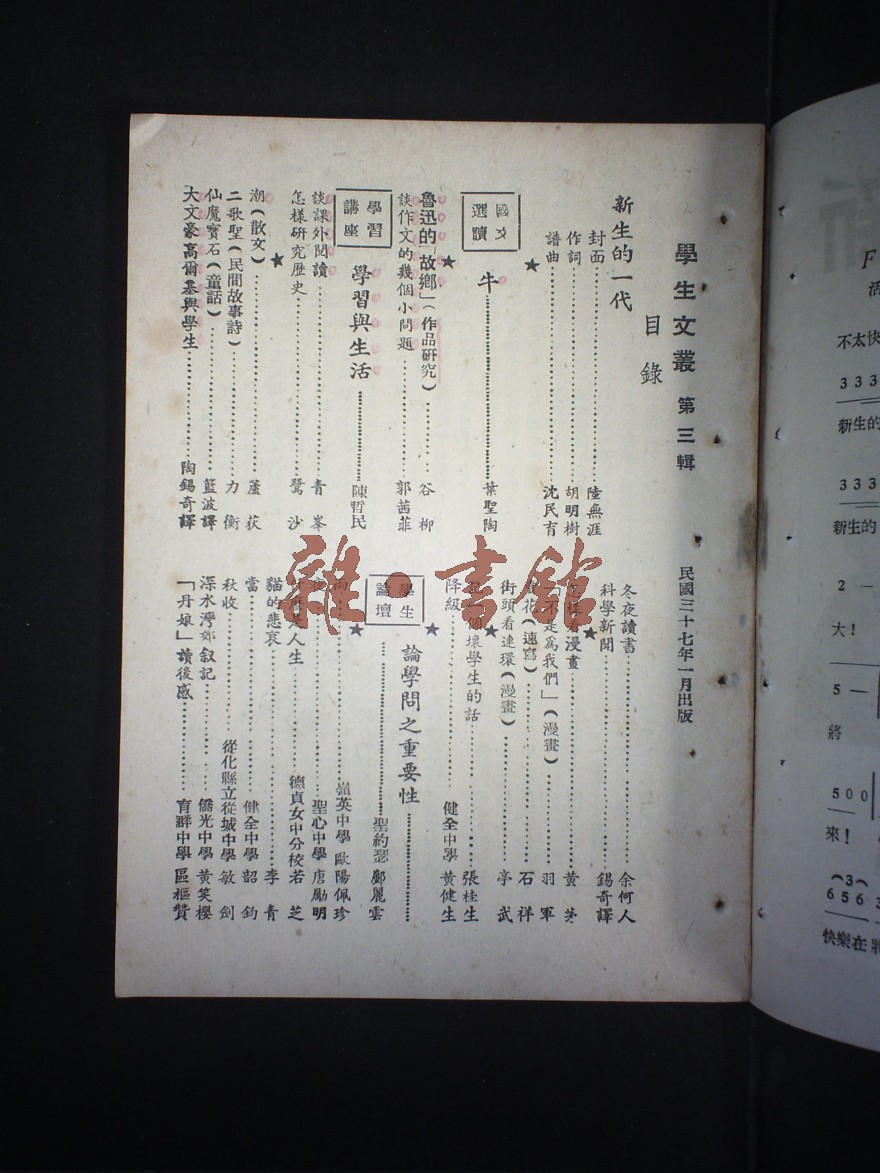 學生文叢 第三輯 民國三十七年一月出版
目錄
新生的一代
封面……陸無涯
作詞……胡明樹
譜曲……沈民育
★
國文選讀
牛……葉聖陶
★
魯迅的「故鄉」(作品研究)……谷柳
談作文的幾個小問題……郭茜菲
學習講座
學習與生活……陳哲民
談課外閱讀……青峯
怎樣研究歷史……鷺沙
★
潮(散文)……蘆荻
二歌聖(民間故事詩)……力衡
仙魔寶石(童話)……籃波譯
大文豪高爾基與學生……陶錫奇譯
冬夜讀書……余何人
科學新聞……錫奇譯
★
漫畫……黃茅
不是為我們」(漫畫)……羽軍
花(速寫)……石祥
街頭看連環(漫畫)……亭武
★
個壞學生的話……張桂生
降級……健全中學 黃健生
★
學生論壇
論學問之重要性……聖約瑟 鄺麗雲
★
嶺英中學 歐陽佩珍
聖心中學 唐勵明
人生……德貞女中分校 若芝
貓的悲哀……李青
當……健全中學 韶鈞
秋收……從化縣立從城中學 敏劍
深水灣郊叙記……僑光中學 黃笑櫻
「丹娘」讀後感……育群中學 區樞贊
雜·書館
F
活
不太快
3 3 3
新生的
3 3 3
新生的
2 —
大!
5 —
將
5 0 0
來!
(3)
6 5 6 3
快樂在將